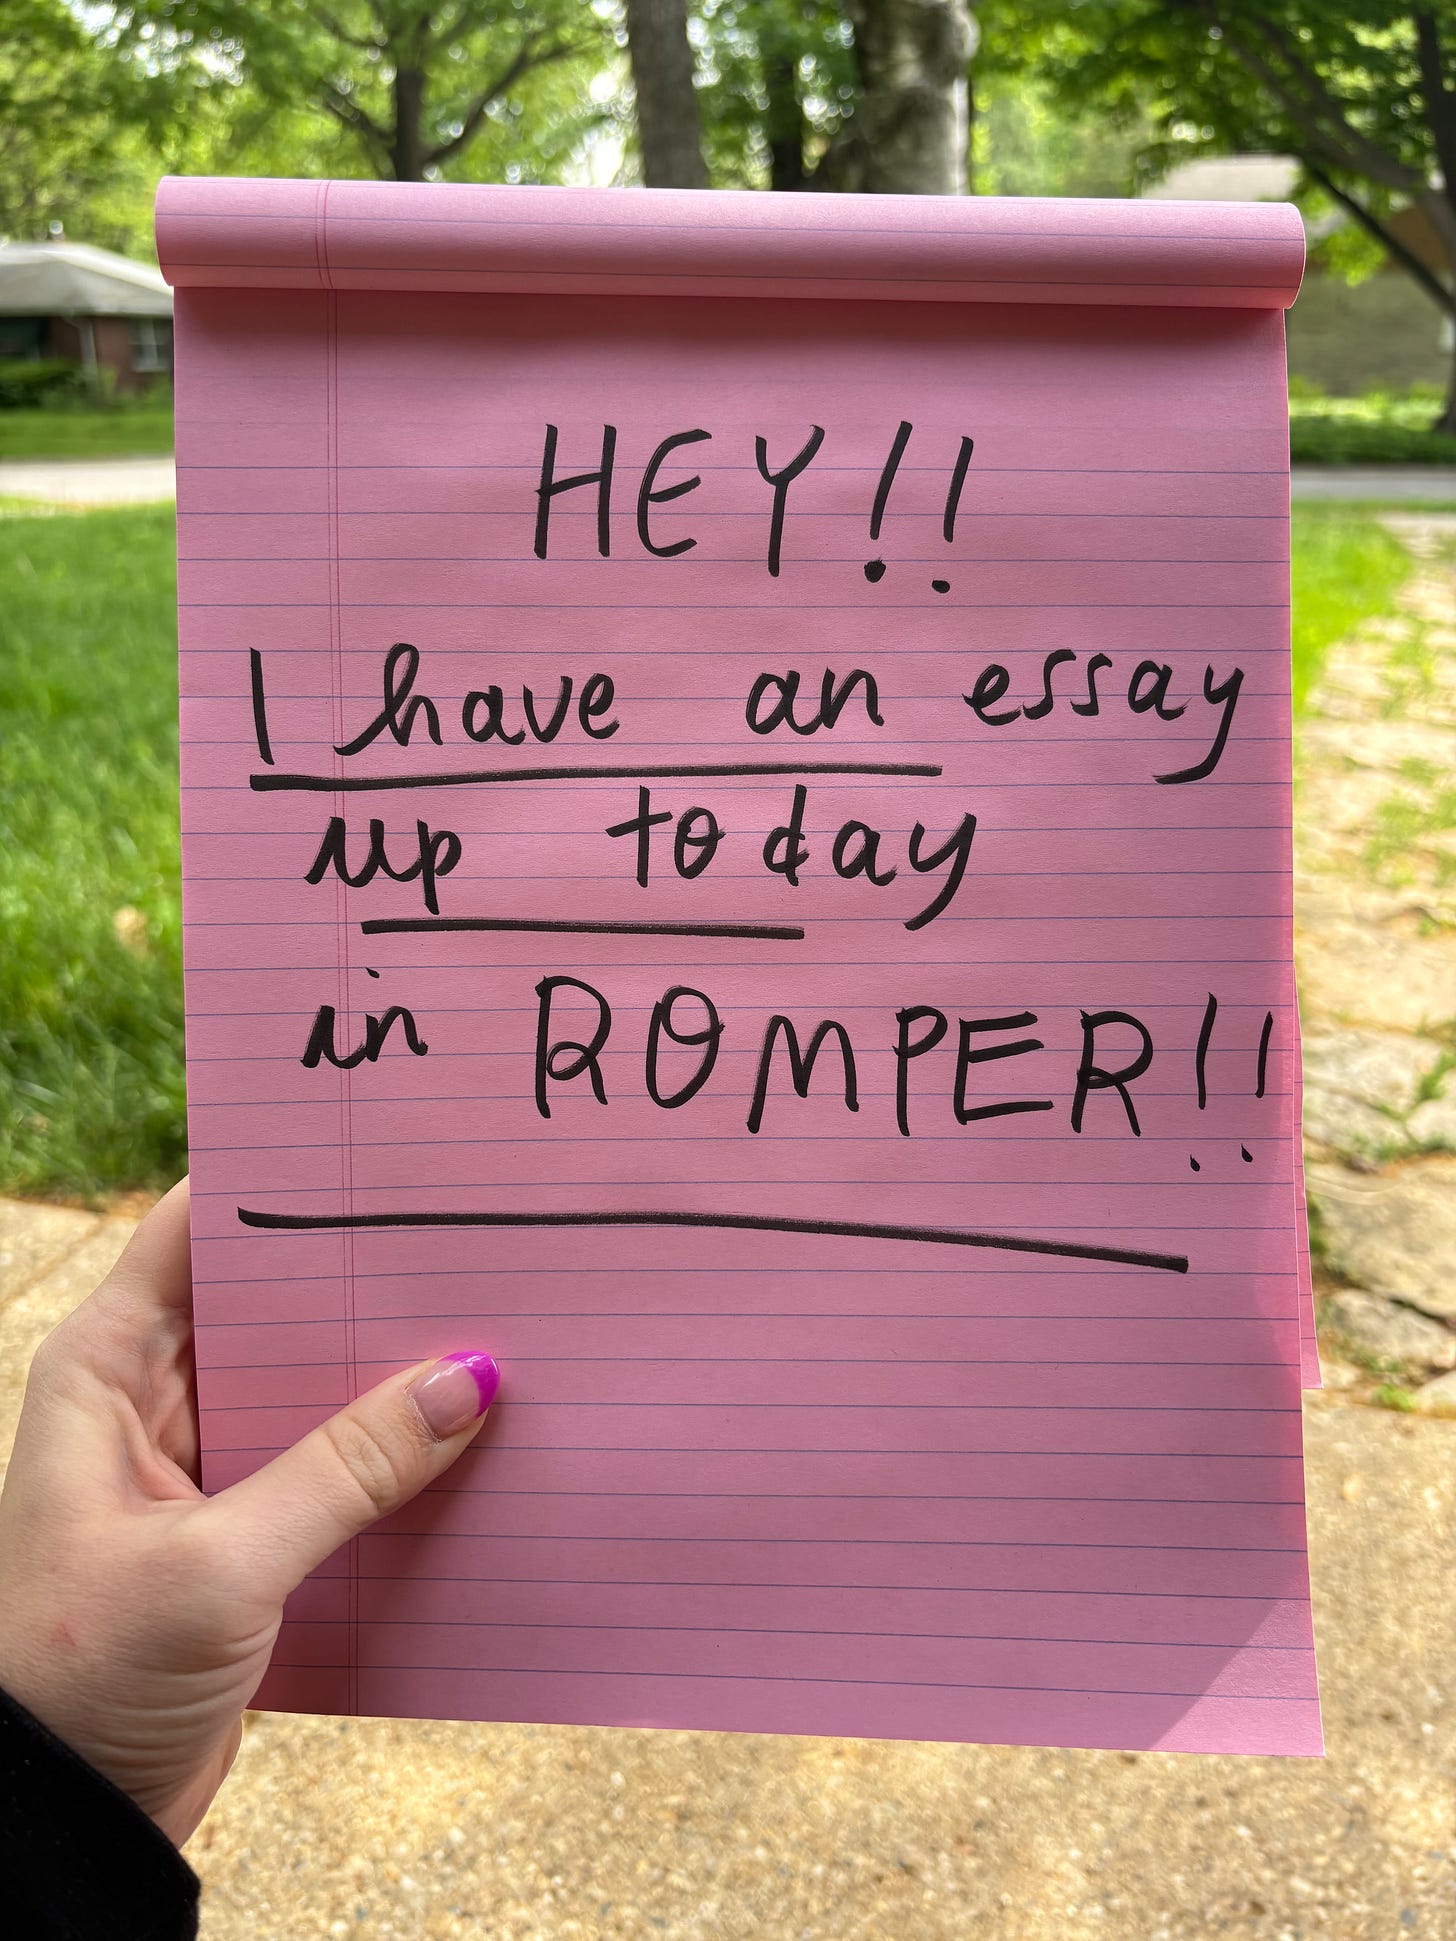 HEY!!
I have an essay
up today
in ROMPER!!